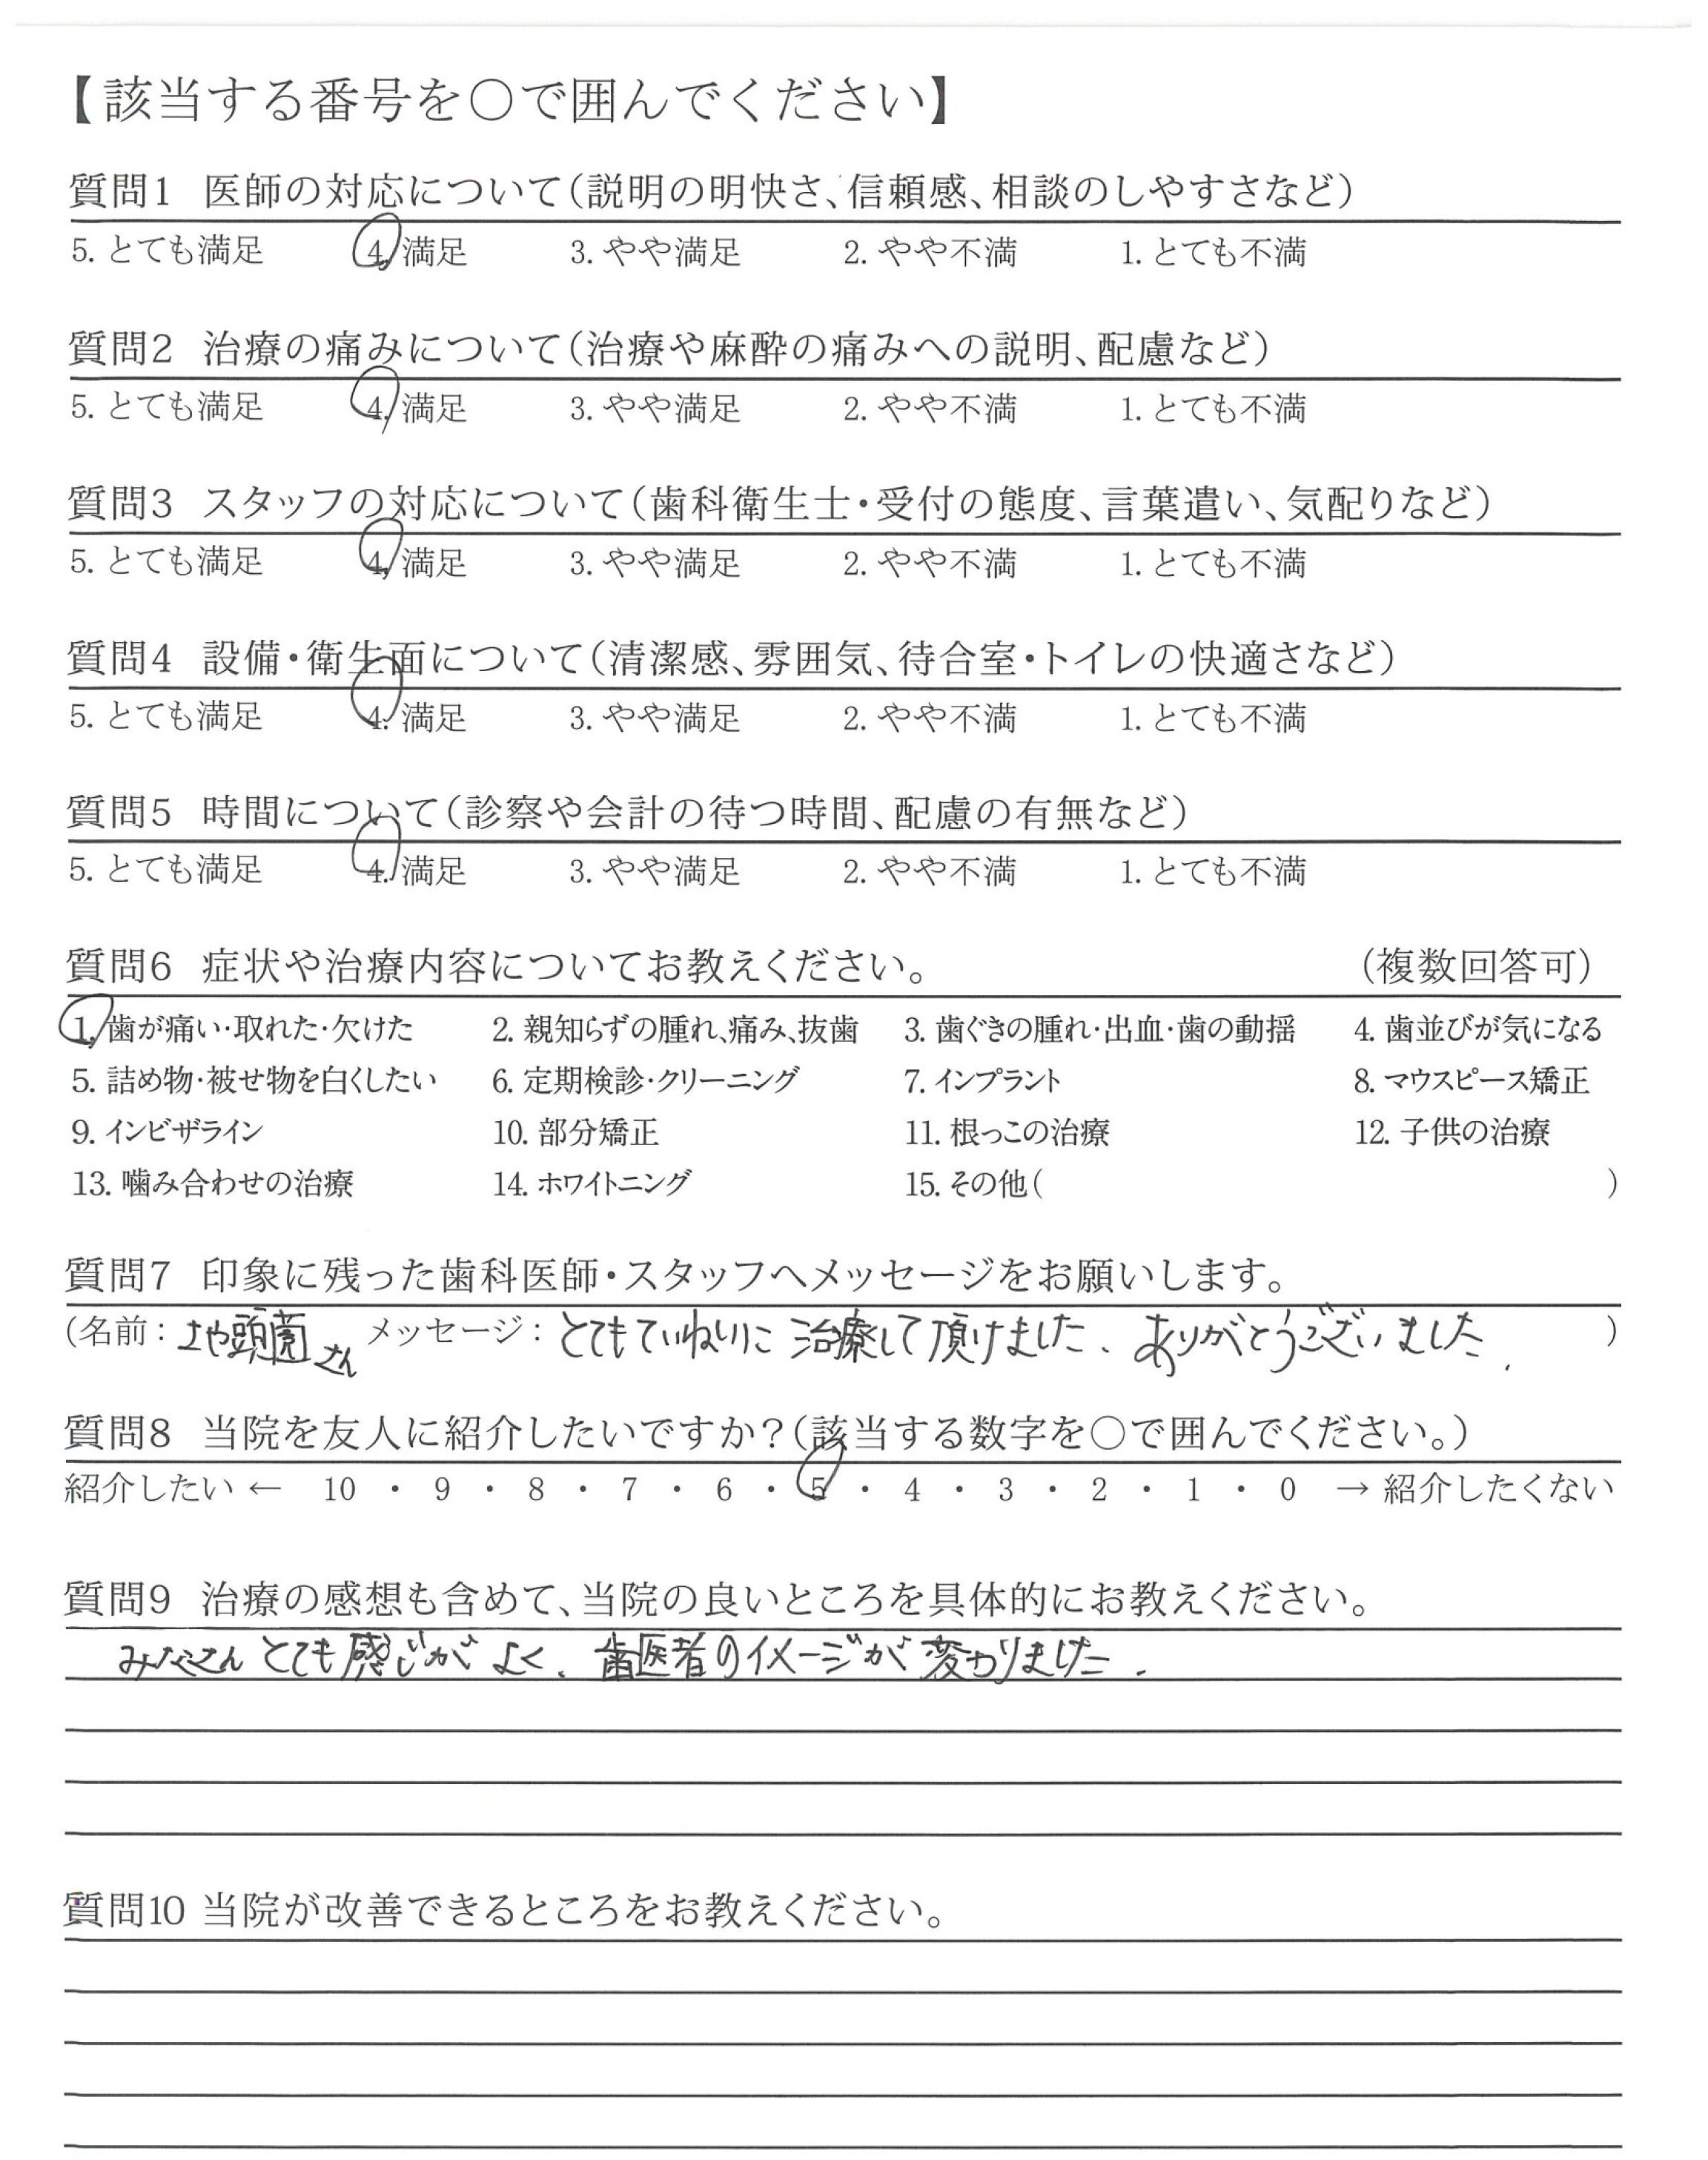 【該当する番号を○で囲んでください】
質問1 医師の対応について(説明の明快さ、信頼感、相談のしやすさなど)
5. とても満足 4. 満足 3. やや満足 2. やや不満 1. とても不満
質問2 治療の痛みについて(治療や麻酔の痛みへの説明、配慮など)
5. とても満足 4. 満足 3. やや満足 2. やや不満 1. とても不満
質問3 スタッフの対応について(歯科衛生士・受付の態度、言葉遣い、気配りなど)
5. とても満足 4. 満足 3. やや満足 2. やや不満 1. とても不満
質問4 設備・衛生面について(清潔感、雰囲気、待合室・トイレの快適さなど)
5. とても満足 4. 満足 3. やや満足 2. やや不満 1. とても不満
質問5 時間について(診察や会計の待つ時間、配慮の有無など)
5. とても満足 4. 満足 3. やや満足 2. やや不満 1. とても不満
質問6 症状や治療内容についてお教えください。 (複数回答可)
1. 歯が痛い・取れた・欠けた 2. 親知らずの腫れ、痛み、抜歯 3. 歯ぐきの腫れ・出血・歯の動揺 4. 歯並びが気になる
5. 詰め物・被せ物を白くしたい 6. 定期検診・クリーニング 7. インプラント 8. マウスピース矯正
9. インビザライン 10. 部分矯正 11. 根っこの治療 12. 子供の治療
13. 噛み合わせの治療 14. ホワイトニング 15. その他( )
質問7 印象に残った歯科医師・スタッフへメッセージをお願いします。
(名前: さん メッセージ: とてもていねいに 治療して頂けました、ありがとうございました. )
質問8 当院を友人に紹介したいですか?(該当する数字を○で囲んでください。)
紹介したい ← 10 ・ 9 ・ 8 ・ 7 ・ 6 ・ 5 ・ 4 ・ 3 ・ 2 ・ 1 ・ 0 → 紹介したくない
質問9 治療の感想も含めて、当院の良いところを具体的にお教えください。
みなさん とても感じが よく、歯医者のイメージが 変わりました.
質問10 当院が改善できるところをお教えください。